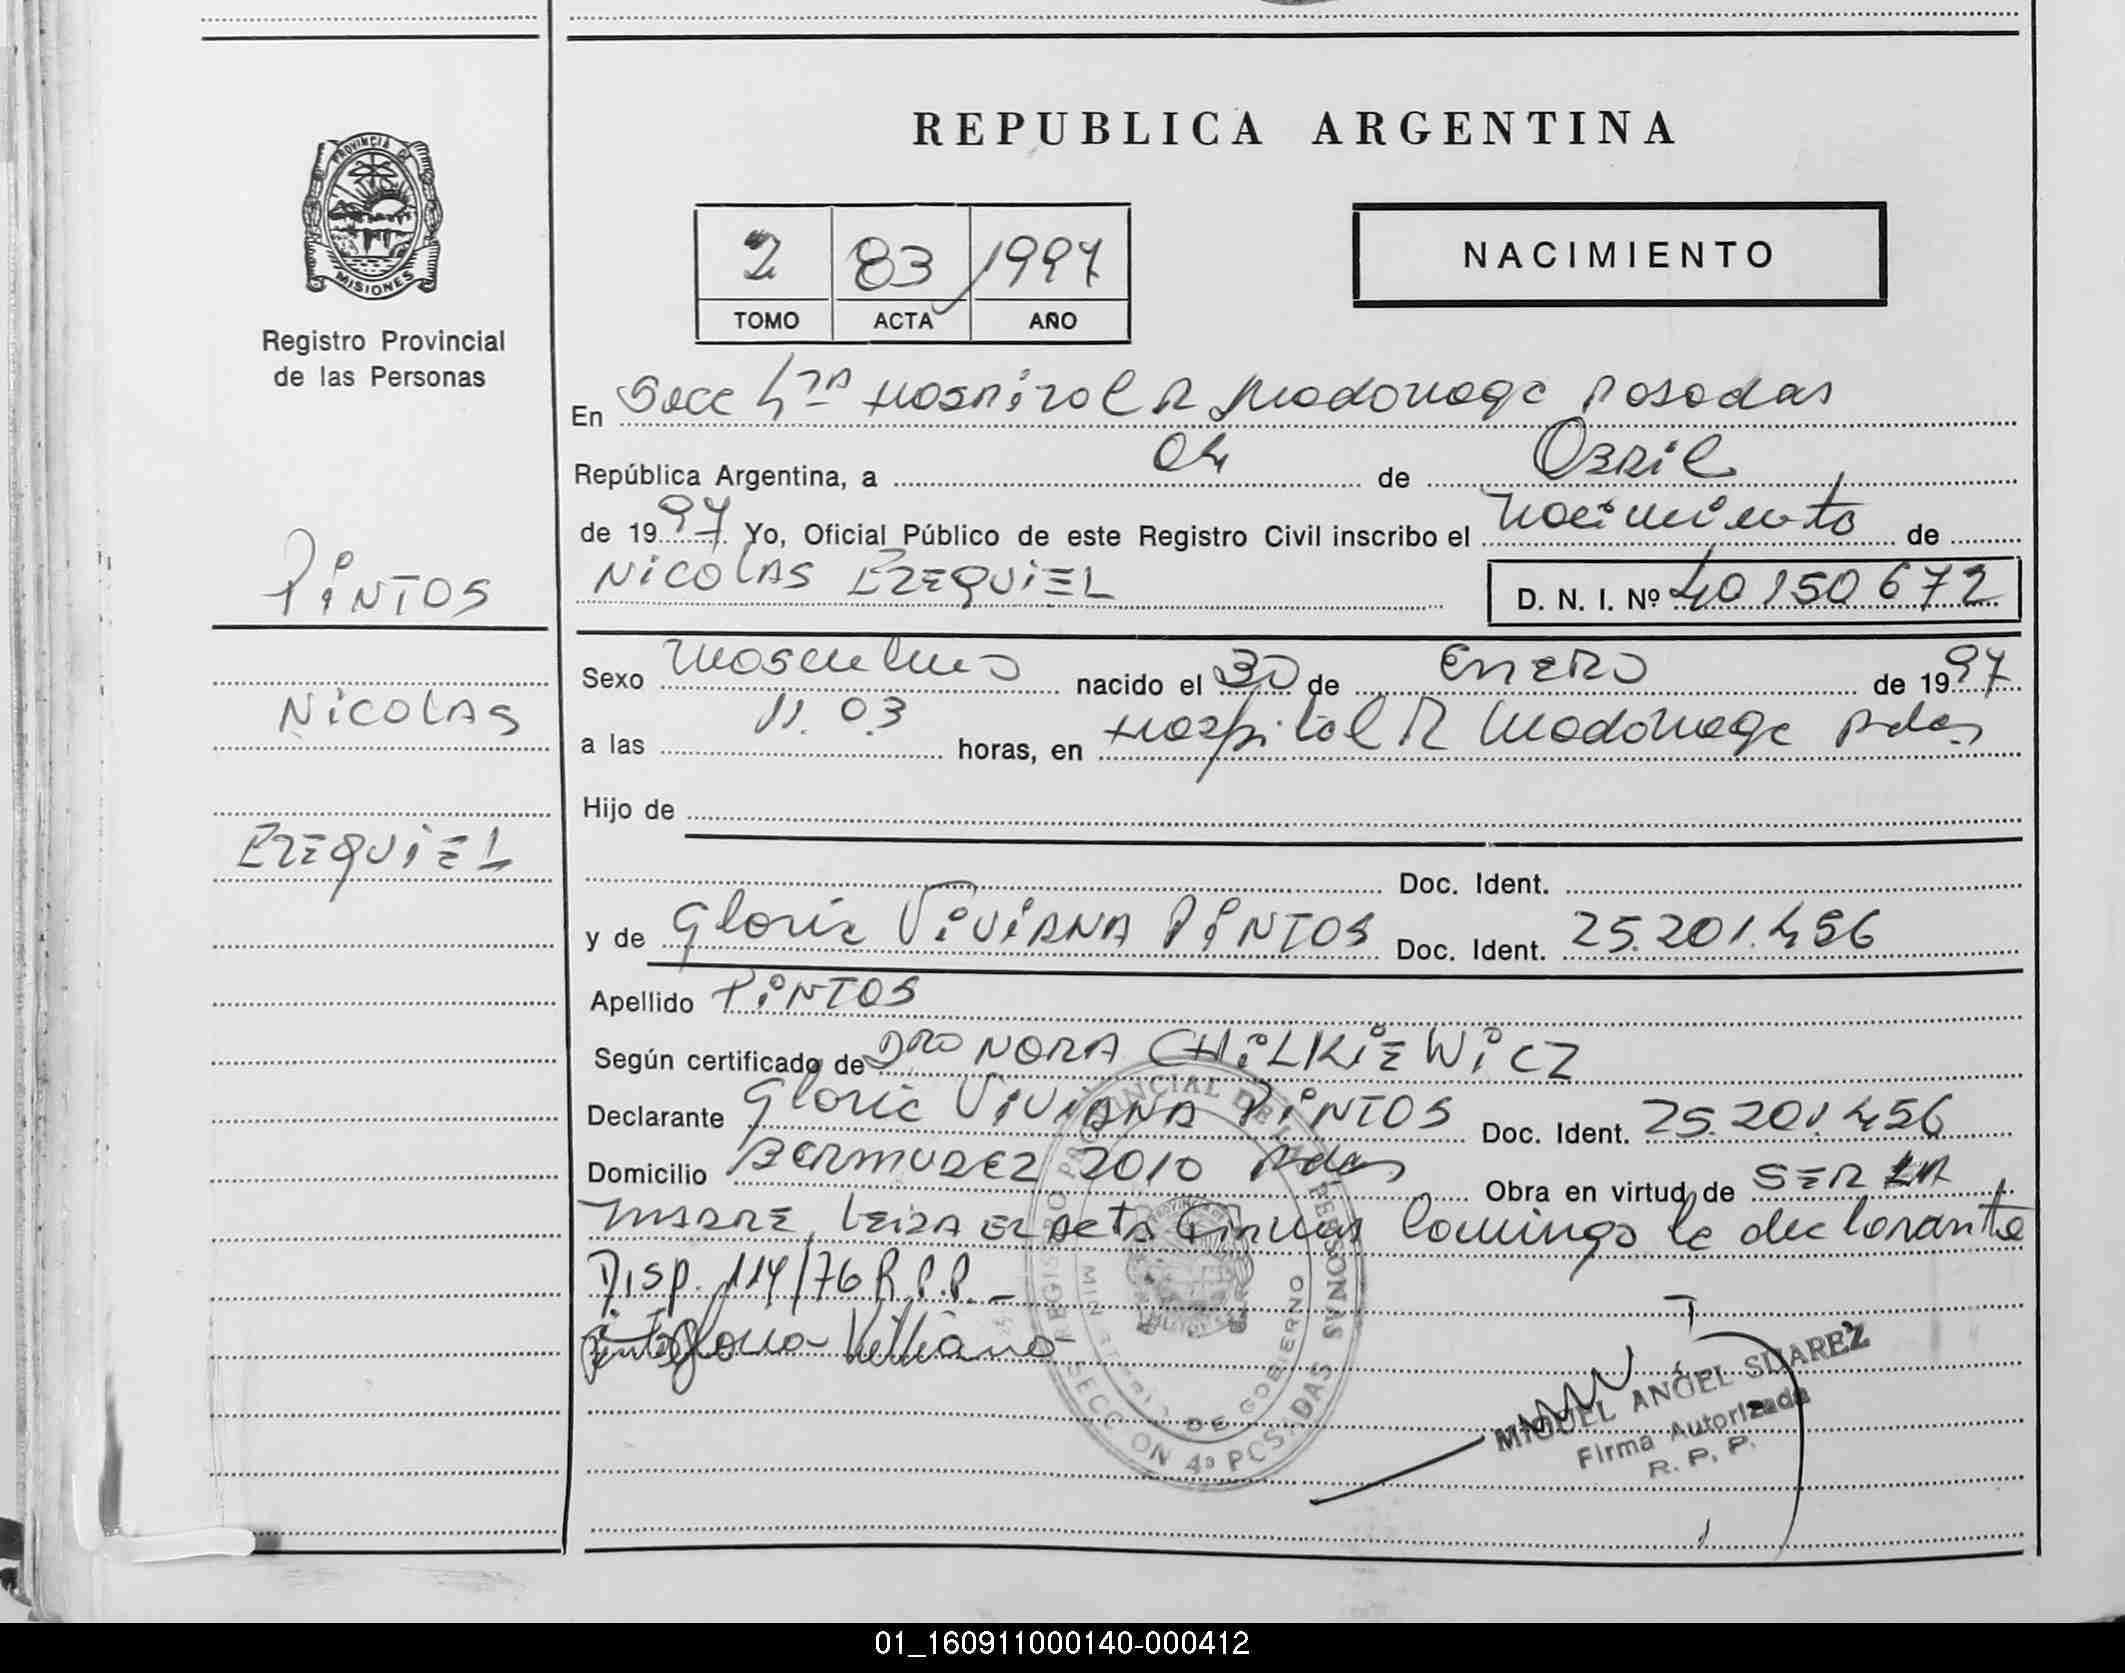 REPUBLICA ARGENTINA
PROVINCIA DE
MISIONES
Registro Provincial
de las Personas
2 83 1997
TOMO ACTA AÑO
NACIMIENTO
En Secc 4ta Hospital R Madariaga Posadas
República Argentina, a 04 de Abril
de 1997 Yo, Oficial Público de este Registro Civil inscribo el Nacimiento de
NICOLAS EZEQUIEL D. N. I. Nº 40150672
PINTOS
NICOLAS
EZEQUIEL
Sexo Masculino nacido el 30 de ENERO de 1997
a las 11.03 horas, en Hospital R Madariaga Pdas
Hijo de
Doc. Ident.
y de Gloria VIVIANA PINTOS Doc. Ident. 25.201.456
Apellido PINTOS
Según certificado de Dra NORA CHILKIEWICZ
Declarante Gloria VIVIANA PINTOS Doc. Ident. 25.201.456
Domicilio BERMUDEZ 2010 Pdas Obra en virtud de SER LA
MADRE, LEIDA EL ACTA Firman Conmigo la declarante
Disp. 114/76 R.P.P.-
REGISTRO PROVINCIAL DE LAS PERSONAS
MINISTERIO DE GOBIERNO
SECCION 4a POSADAS
MIGUEL ANGEL SUAREZ
Firma Autorizada
R. P. P.
01_160911000140-000412